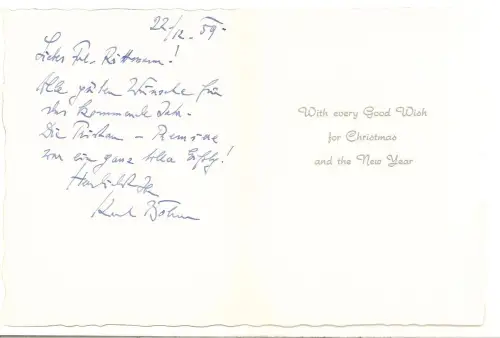 22/12. 59.
Liebes Frl. Rothmann!
Alle guten Wünsche für
das kommende Jahr.
Die Tristan – Premiere
war ein ganz toller Erfolg!
Herzlichst Ihr
Karl Böhm
With every Good Wish
for Christmas
and the New Year